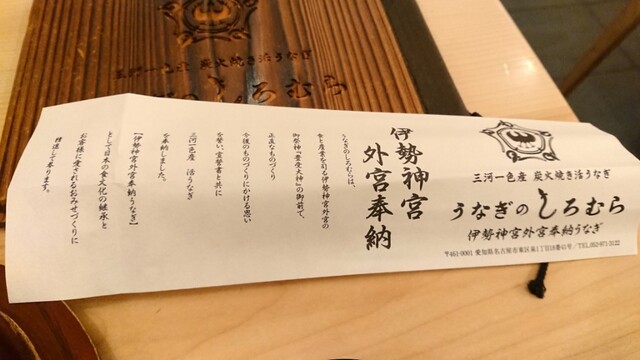 三河一色産 炭火焼き活うなぎ
うなぎのしろむら
三河一色産 炭火焼き活うなぎ
うなぎのしろむら
伊勢神宮外宮奉納うなぎ
〒461-0001 愛知県名古屋市東区泉1丁目18番41号／TEL.052-971-5122
伊勢神宮
外宮奉納
うなぎのしろむらは、
食と産業を司る伊勢神宮外宮の
御祭神「豊受大神」の御前で、
正直なものづくり
今後のものづくりにかける思い
を誓い、宣誓書と共に
三河一色産 活うなぎ
を奉納しました。
【伊勢神宮外宮奉納うなぎ】
として日本の食文化の継承と
お客様に愛されるおみせづくりに
精進して参ります。